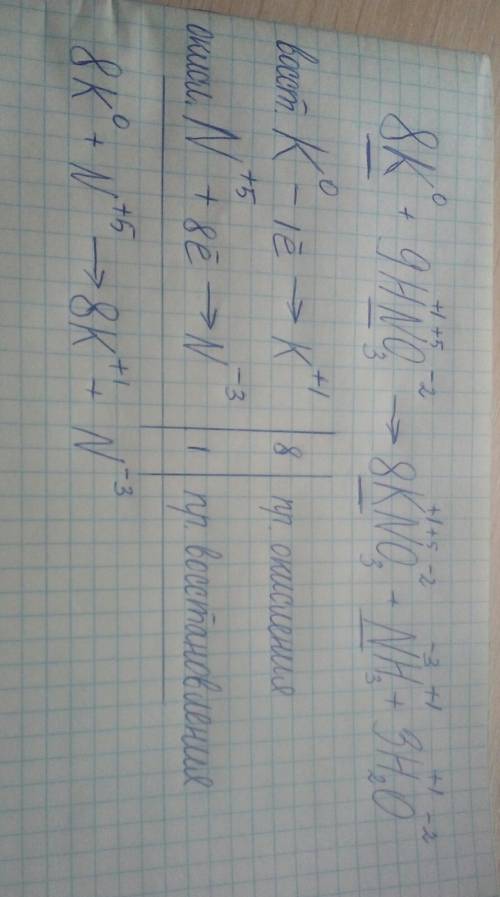 8K⁰ + 9H⁺¹N⁺⁵O₃⁻² → 8K⁺¹N⁺⁵O₃⁻² + N⁻³H₃⁺¹ + 9H₂⁺¹O⁻²
восст. K⁰ − 1ē → K⁺¹ | 8 | пр. окисления
окисл. N⁺⁵ + 8ē → N⁻³ | 1 | пр. восстановления
8K⁰ + N⁺⁵ → 8K⁺¹ + N⁻³